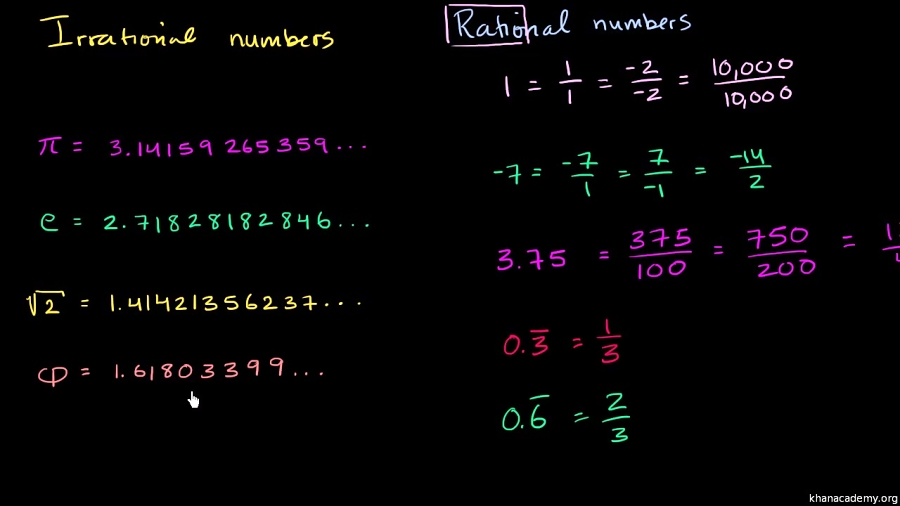 Irrational numbers
π = 3.14159 265359...
e = 2.71828182846...
√2 = 1.41421356237...
φ = 1.61803399...
Rational numbers
1 = 1/1 = -2/-2 = 10,000/10,000
-7 = -7/1 = 7/-1 = -14/2
3.75 = 375/100 = 750/200 =
0.3̅ = 1/3
0.6̅ = 2/3
khanacademy.org